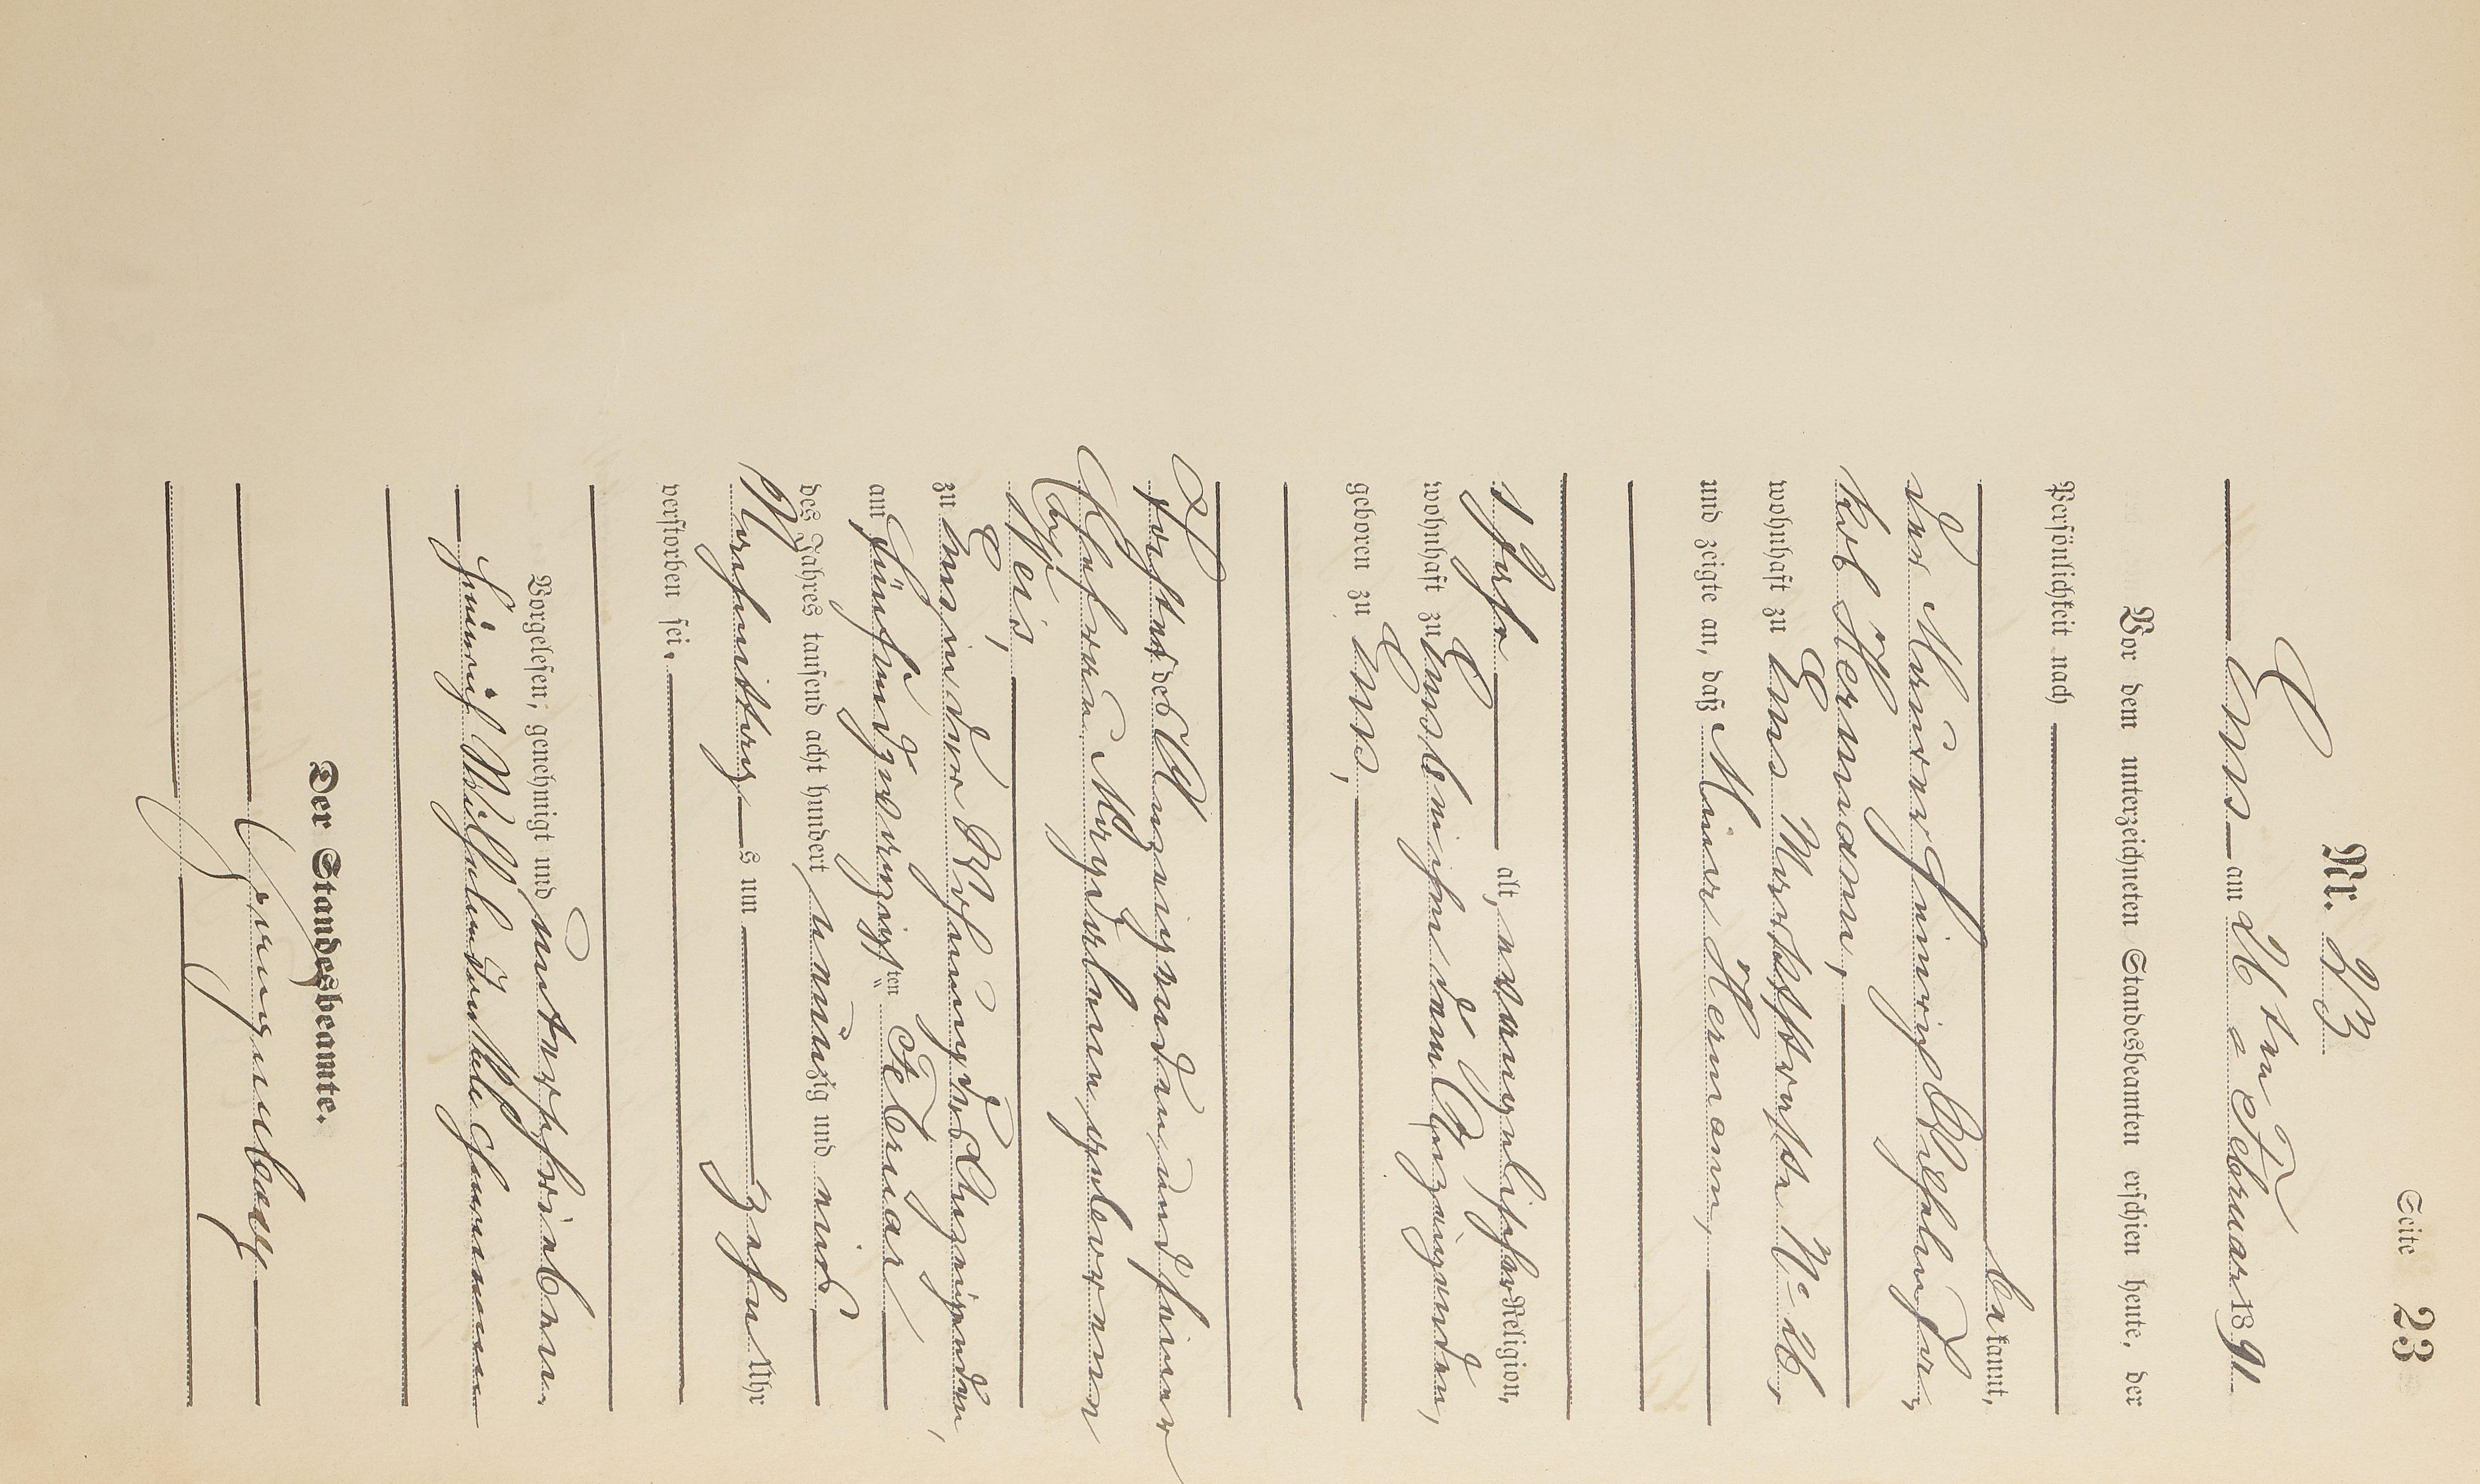 Seite 23
Nr. 23
Ems am 26 ten Februar 1891
Vor dem unterzeichneten Standesbeamten erschien heute, der
Persönlichkeit nach
bekannt,
der Maurer Heinrich Wilhelm Ja-
kob Hermann,
wohnhaft zu Ems Marktstraße No 26,
und zeigte an, daß Maier Hermann,
1 Jahr alt, evangelischer Religion,
wohnhaft zu Ems bei ihm dem Anzeigenden,
geboren zu Ems,
Tochter des Anzeigenden und seiner
Ehefrau Magdalena geborenen
Geis,
zu Ems in der Wohnung des Anzeigenden,
am fünfundzwanzigsten Februar
des Jahres tausend acht hundert neunzig und eins
Nachmittags um zehn Uhr
verstorben sei.
Vorgelesen, genehmigt und unterschrieben
Heinrich Wilhelm Jakob Hermann
Der Standesbeamte.